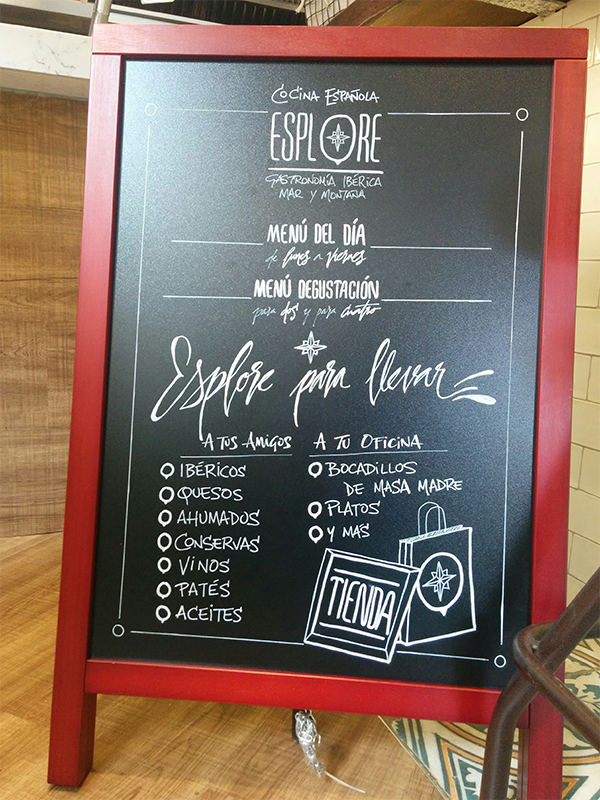 COCINA ESPAÑOLA
ESPLORE
GASTRONOMÍA IBÉRICA
MAR Y MONTAÑA
MENÚ DEL DÍA
de lunes a viernes
MENÚ DEGUSTACIÓN
para dos y para cuatro
Esplore para llevar
A TUS AMIGOS
IBÉRICOS
QUESOS
AHUMADOS
CONSERVAS
VINOS
PATÉS
ACEITES
A TU OFICINA
BOCADILLOS
DE MASA MADRE
PLATOS
Y MÁS
TIENDA